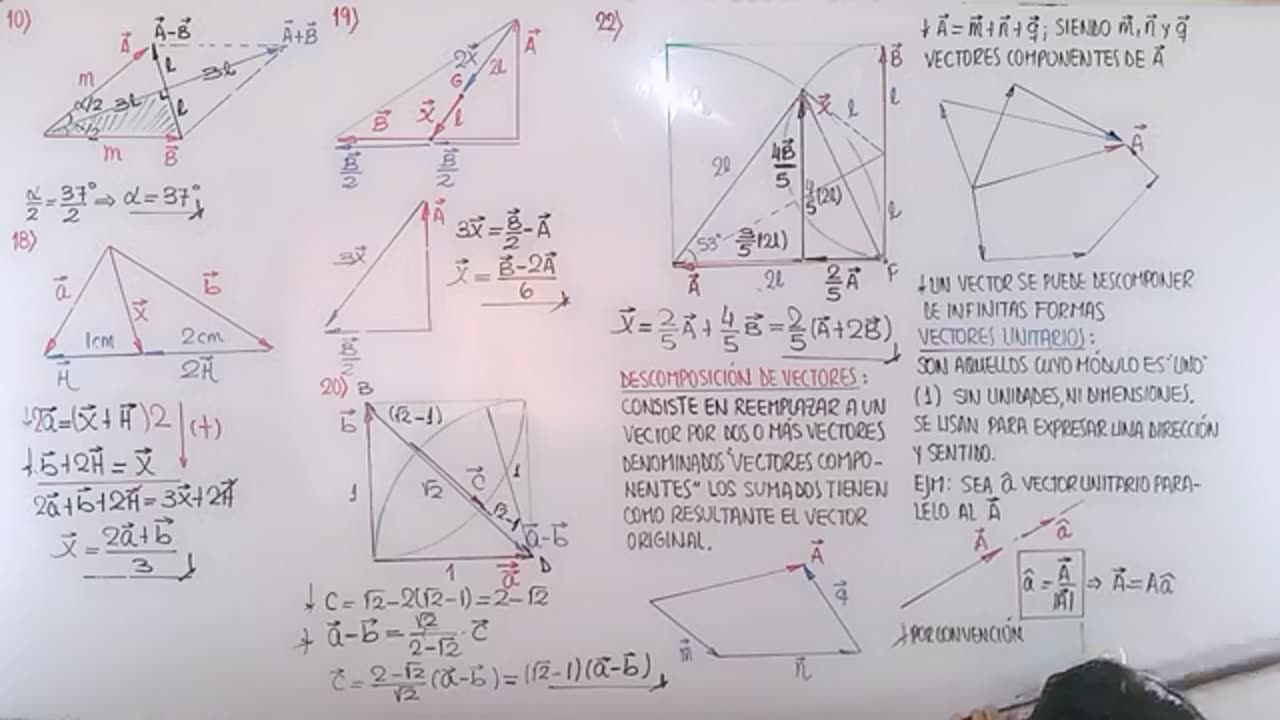 10)
A⃗
A⃗-B⃗
A⃗+B⃗
m
l
3l
α/2
3l
l
α/2
m
B⃗
α/2 = 37°/2 ⇒ α = 37°
18)
a⃗
x⃗
b⃗
1cm
2cm
H⃗
2H⃗
2a⃗ = (x⃗ + H⃗)2
(+)
b⃗ + 2H⃗ = x⃗
2a⃗ + b⃗ + 2H⃗ = 3x⃗ + 2H⃗
x⃗ = (2a⃗ + b⃗)/3
19)
A⃗
2x⃗
2l
G
x⃗
l
B⃗
B⃗/2
B⃗/2
A⃗
3x⃗
B⃗/2
3x⃗ = B⃗/2 - A⃗
x⃗ = (B⃗ - 2A⃗)/6
20)
B
b⃗
(√2-1)
1
√2
c⃗
1
√2-1
a⃗-b⃗
1
a⃗
D
C = √2-2(√2-1) = 2-√2
a⃗-b⃗ = √2/(2-√2) · c⃗
c⃗ = (2-√2)/√2 (a⃗-b⃗) = (√2-1)(a⃗-b⃗)
22)
B⃗
x⃗
l
l
2l
4B⃗/5
4/5(2l)
l
53°
3/5(2l)
A⃗
2l
2/5 A⃗
F
x⃗ = 2/5 A⃗ + 4/5 B⃗ = 2/5 (A⃗ + 2B⃗)
DESCOMPOSICIÓN DE VECTORES:
CONSISTE EN REEMPLAZAR A UN
VECTOR POR DOS O MÁS VECTORES
DENOMINADOS "VECTORES COMPO-
NENTES" LOS SUMADOS TIENEN
COMO RESULTANTE EL VECTOR
ORIGINAL.
A⃗
q⃗
m⃗
n⃗
A⃗ = m⃗ + n⃗ + q⃗; SIENDO m⃗, n⃗ y q⃗
VECTORES COMPONENTES DE A⃗
A⃗
UN VECTOR SE PUEDE DESCOMPONER
DE INFINITAS FORMAS
VECTORES UNITARIOS:
SON AQUELLOS CUYO MÓDULO ES "UNO"
(1) SIN UNIDADES, NI DIMENSIONES.
SE USAN PARA EXPRESAR UNA DIRECCIÓN
Y SENTIDO.
EJM: SEA â VECTOR UNITARIO PARA-
LELO AL A⃗
A⃗
â
â = A⃗/|A⃗| ⇒ A⃗ = Aâ
POR CONVENCIÓN